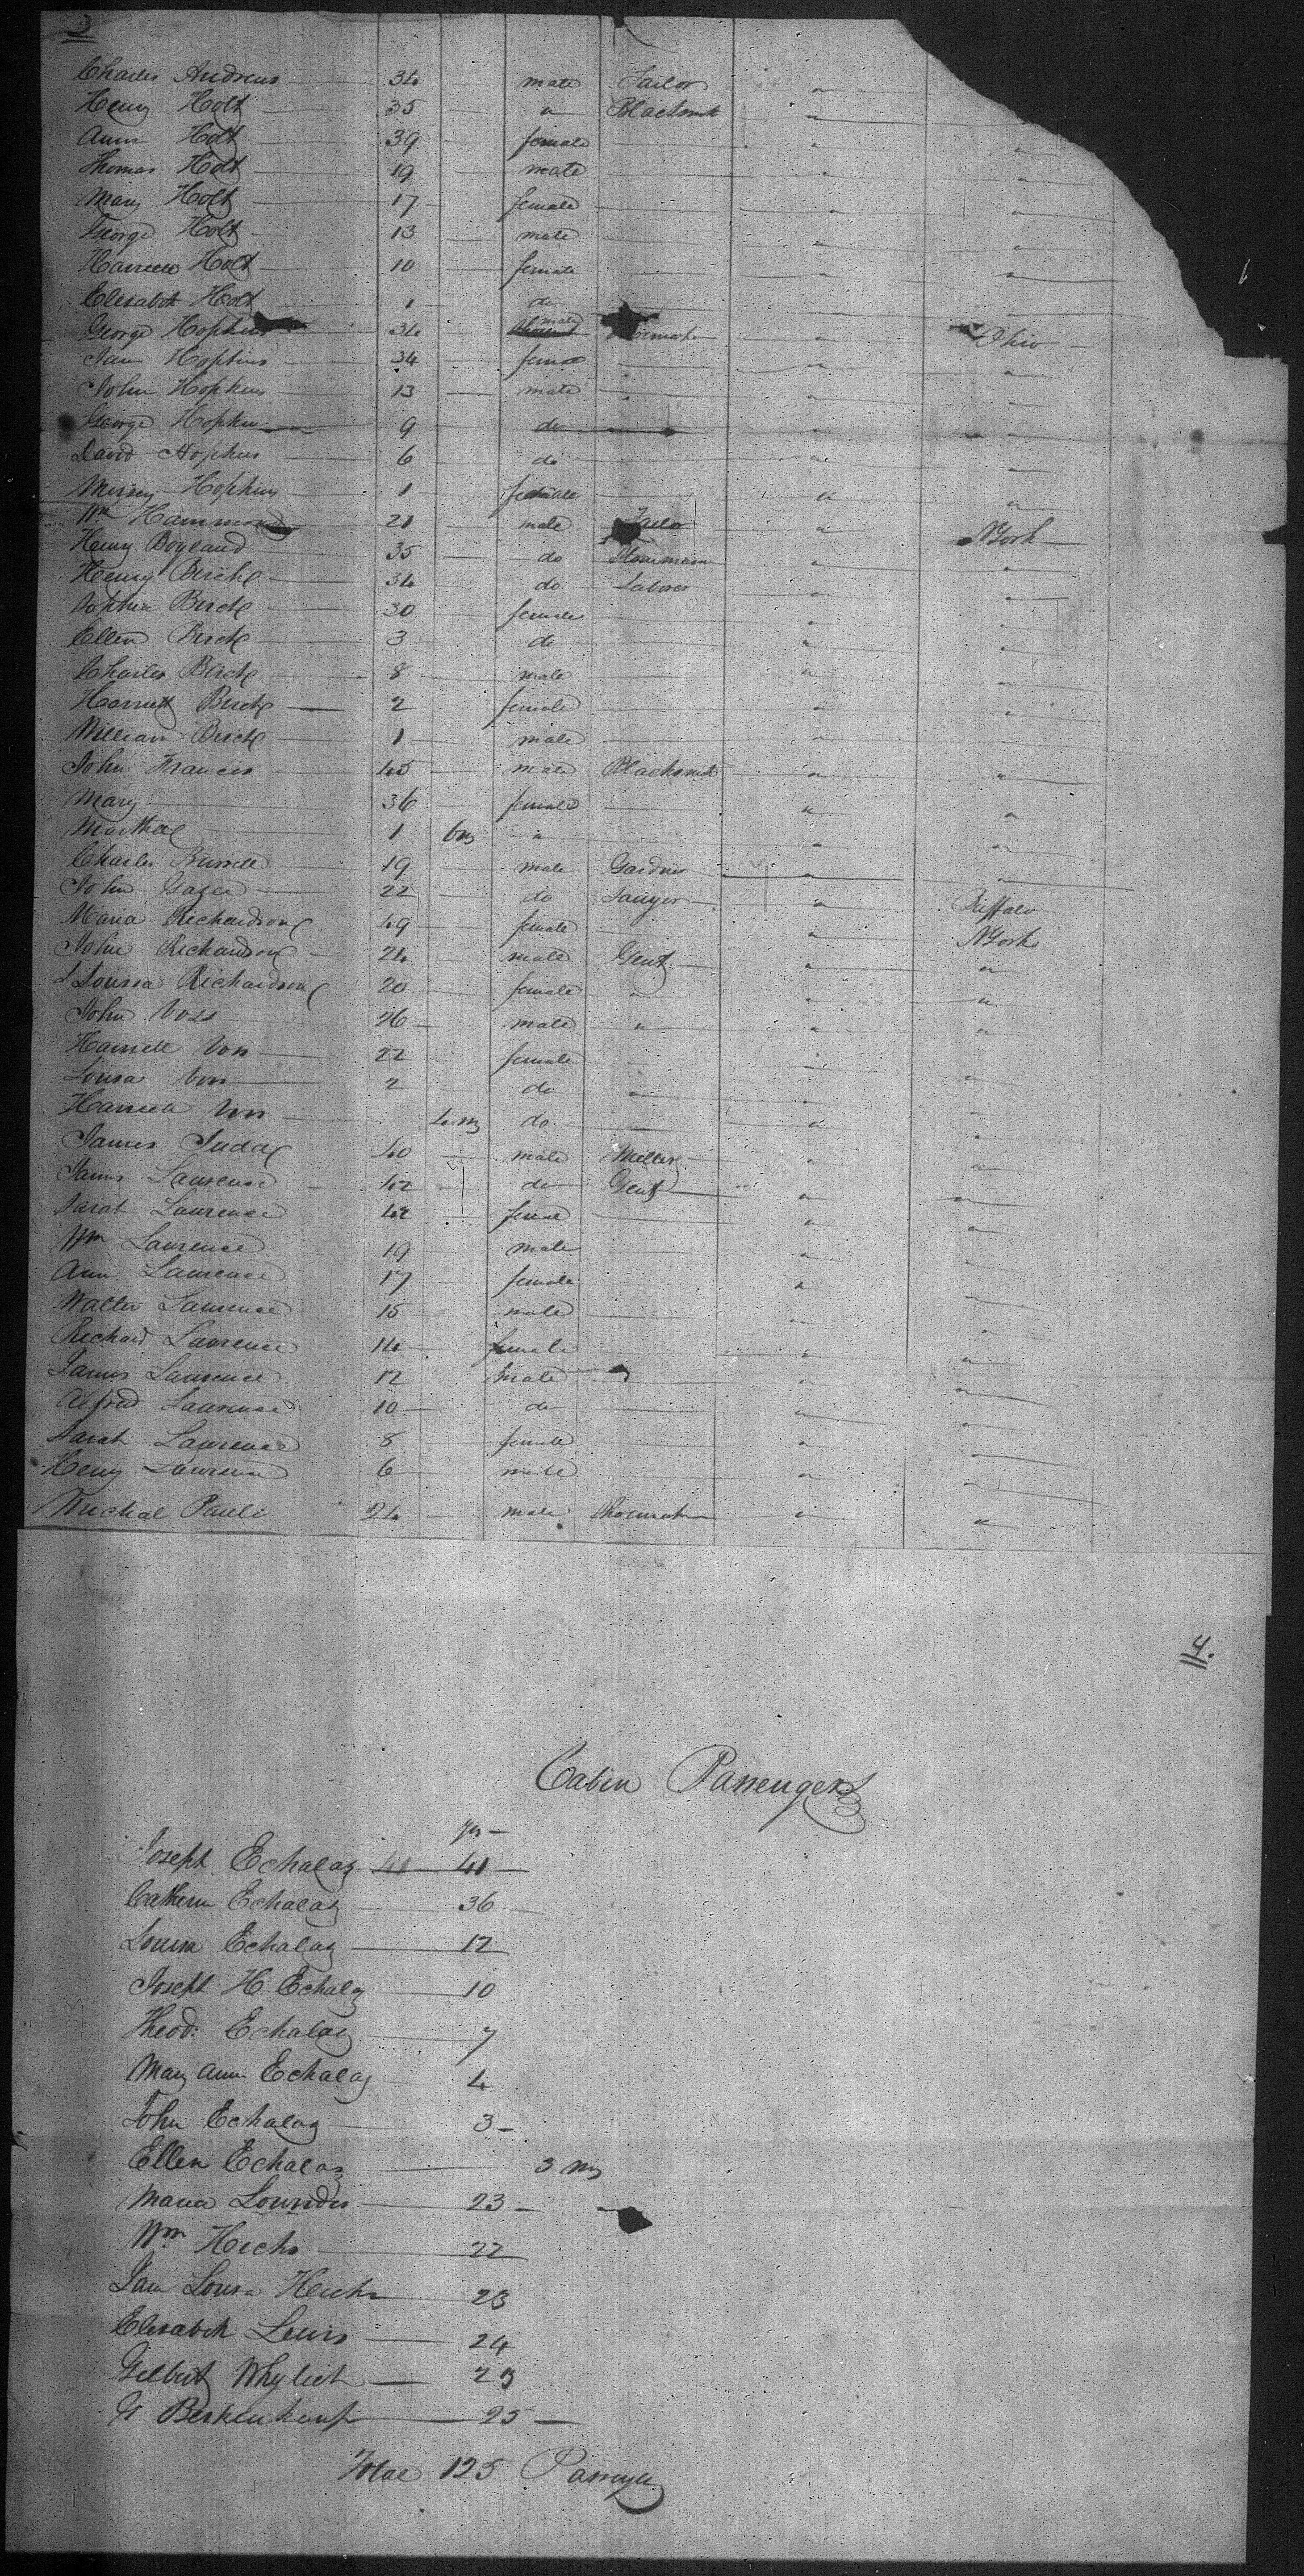 3
Charles Andrews 34 male Tailor "
Henry Holt 35 " Blacksmith "
Ann Holt 39 female " "
Thomas Holt 19 male " "
Mary Holt 17 female " "
George Holt 13 male " "
Holt 10 female " "
Elisabeth Holt 1 do "
George Hopkins 34 male " Ohio
Jane Hopkins 34 female " "
John Hopkins 13 male " "
George Hopkins 9 do " "
David Hopkins 6 do " "
Hopkins 1 female " "
Wm Hammond 21 male Tailor " N York
Henry Boyland 35 do " "
Henry Birch 34 do Laborer " "
Sophia Birch 30 female " "
Ellen Birch 3 do " "
Charles Birch 8 male " "
Harriett Birch 2 female " "
William Birch 1 male "
John Francis 45 male Blacksmith " "
Mary 36 female " "
Martha 1 6 ms " " "
Charles 19 male Gardner " "
John 22 do Sawyer " Buffalo
Maria Richardson 49 female " N York
John Richardson 24 male Gent " "
Louisa Richardson 20 female " " "
John Voss 26 male " " "
Voss 22 female " "
Lousa Voss 2 do " "
Voss 4 ms do " "
James Juda 40 male Miller " "
James Laurence 42 do Gent " "
Sarah Laurence 42 female " "
Wm Laurence 19 male "
Ann Laurence 17 female "
Walter Laurence 15 male " "
Richard Laurence 14 female " "
James Laurence 12 male " "
Alfred Laurence 10 do " "
Sarah Laurence 8 female "
Henry Laurence 6 male " "
Michal Pauli 24 male " "
4.
Cabin Passengers
yrs
Joseph Echalaz 41 41
Cathern Echalaz 36
Louisa Echalaz 12
Joseph H Echalaz 10
Theod: Echalaz 7
Mary Ann Echalaz 4
John Echalaz 3
Ellen Echalaz 3 ms
Maria Lowndes 23
Wm Hicks 22
Jane Lousa Hicks 23
Elisabeth Lewis 24
Gilbert 23
25
Total 125 Passengers